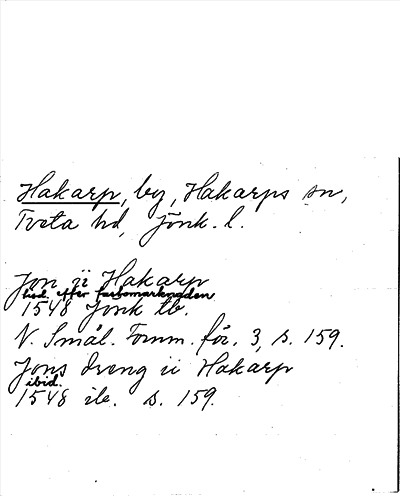 Hakarp, by, Hakarps sn,
Tveta hd, Jönk. l.
Jon ii Hakarp
hed. efter fastomarknaden
1548 Jönk tb.
N. Smål. Fornm. för. 3, s. 159.
Jons dreng ii Hakarp
ibid.
1548 ib. s. 159.